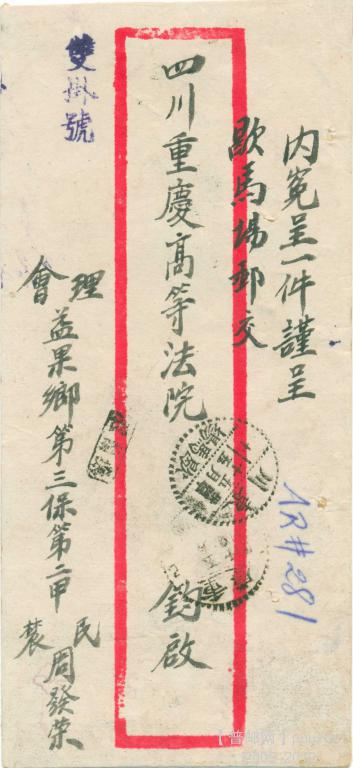 内冤呈一件謹呈
歇馬場郵交
四川重慶高等法院 鈞啟
雙掛號
會理
益果鄉第三保第二甲
農民
周發榮
AR#281